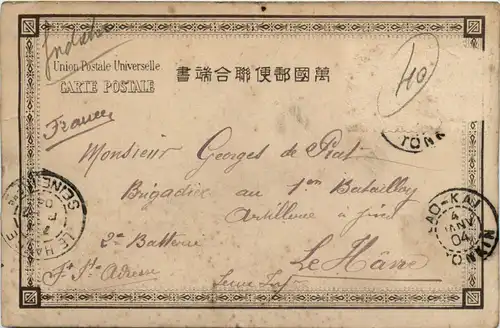 Indochine
Union Postale Universelle
CARTE POSTALE
書端合聯便郵國萬
40
France
TONK
Monsieur Georges de
Brigadier au 1er Bataillon
Artillerie à pied
2e Batterie
Le Hâvre
Seine Infre
LAO-KAI
4
JANV
04
TONKIN
LE HAVRE
SEINE